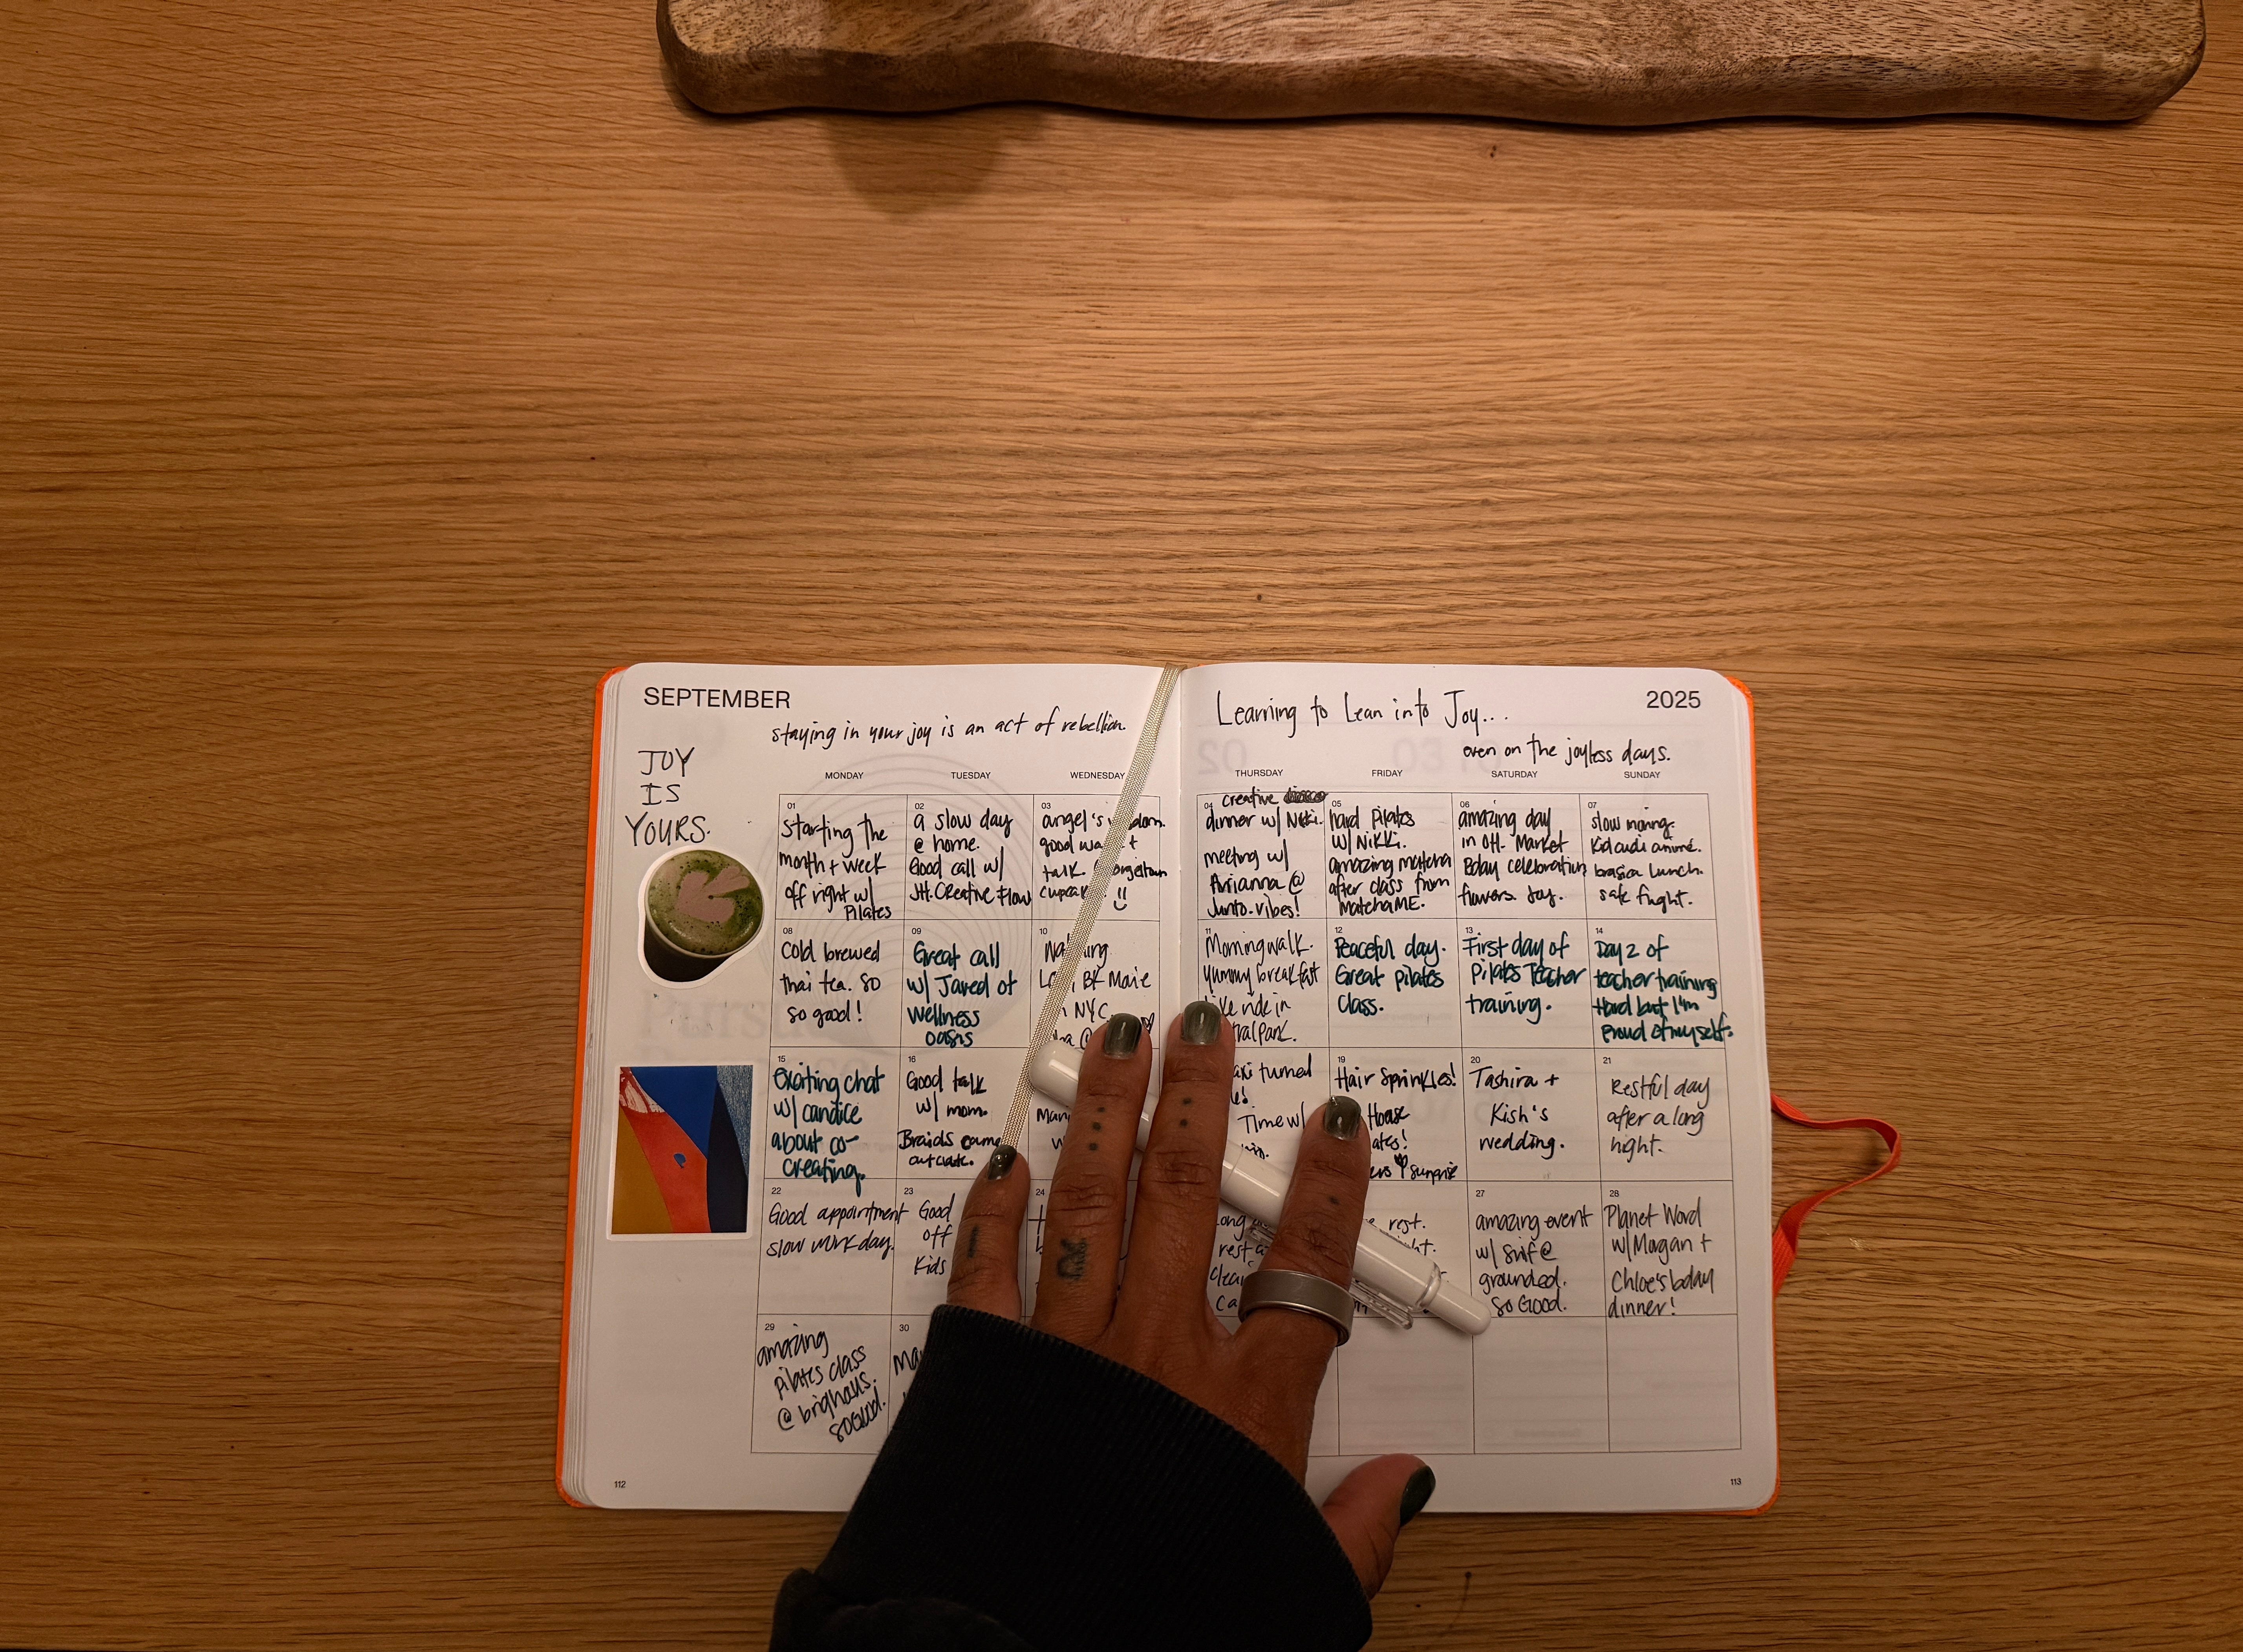 SEPTEMBER
staying in your joy is an act of rebellion.
JOY
IS
YOURS.
MONDAY
TUESDAY
WEDNESDAY
01
starting the
month + week
off right w/
Pilates
02
a slow day
@ home.
Good call w/
JH. Creative Flow
03
angel's
good
talk.
08
Cold brewed
thai tea. so
so good!
09
Great call
w/ Jared of
Wellness
oasis
10
BK
NYC
15
Exciting chat
w/ candice
about co-
creating.
16
Good talk
w/ mom.
Braids came
out cute.
22
Good appointment
slow work day.
23
Good
off
Kids
24
29
amazing
pilates class
@ brighaus.
so Good.
30
112
Learning to Lean into Joy...
2025
even on the joyless days.
THURSDAY
FRIDAY
SATURDAY
SUNDAY
04
creative
dinner w/ Nikki.
meeting w/
Arianna @
Junto. vibes!
05
hard Pilates
w/ Nikki.
amazing matcha
after class from
MatchaME.
06
amazing day
in Oth. Market
Bday celebration
flowers. Joy.
07
slow morning.
Kid cudi animé.
lunch.
safe flight.
11
Morning walk.
Yummy breakfast
ride in
Park.
12
Peaceful day.
Great pilates
class.
13
First day of
Pilates Teacher
training.
14
Day 2 of
teacher training
Hard but I'm
proud of myself.
turned
Time w/
19
Hair Sprinkles!
House
surprise
20
Tashira +
Kish's
wedding.
21
Restful day
after a long
night.
rest
rest.
27
amazing event
w/ @
grounded.
So Good.
28
Planet Word
w/ Magan +
Chloe's bday
dinner!
113